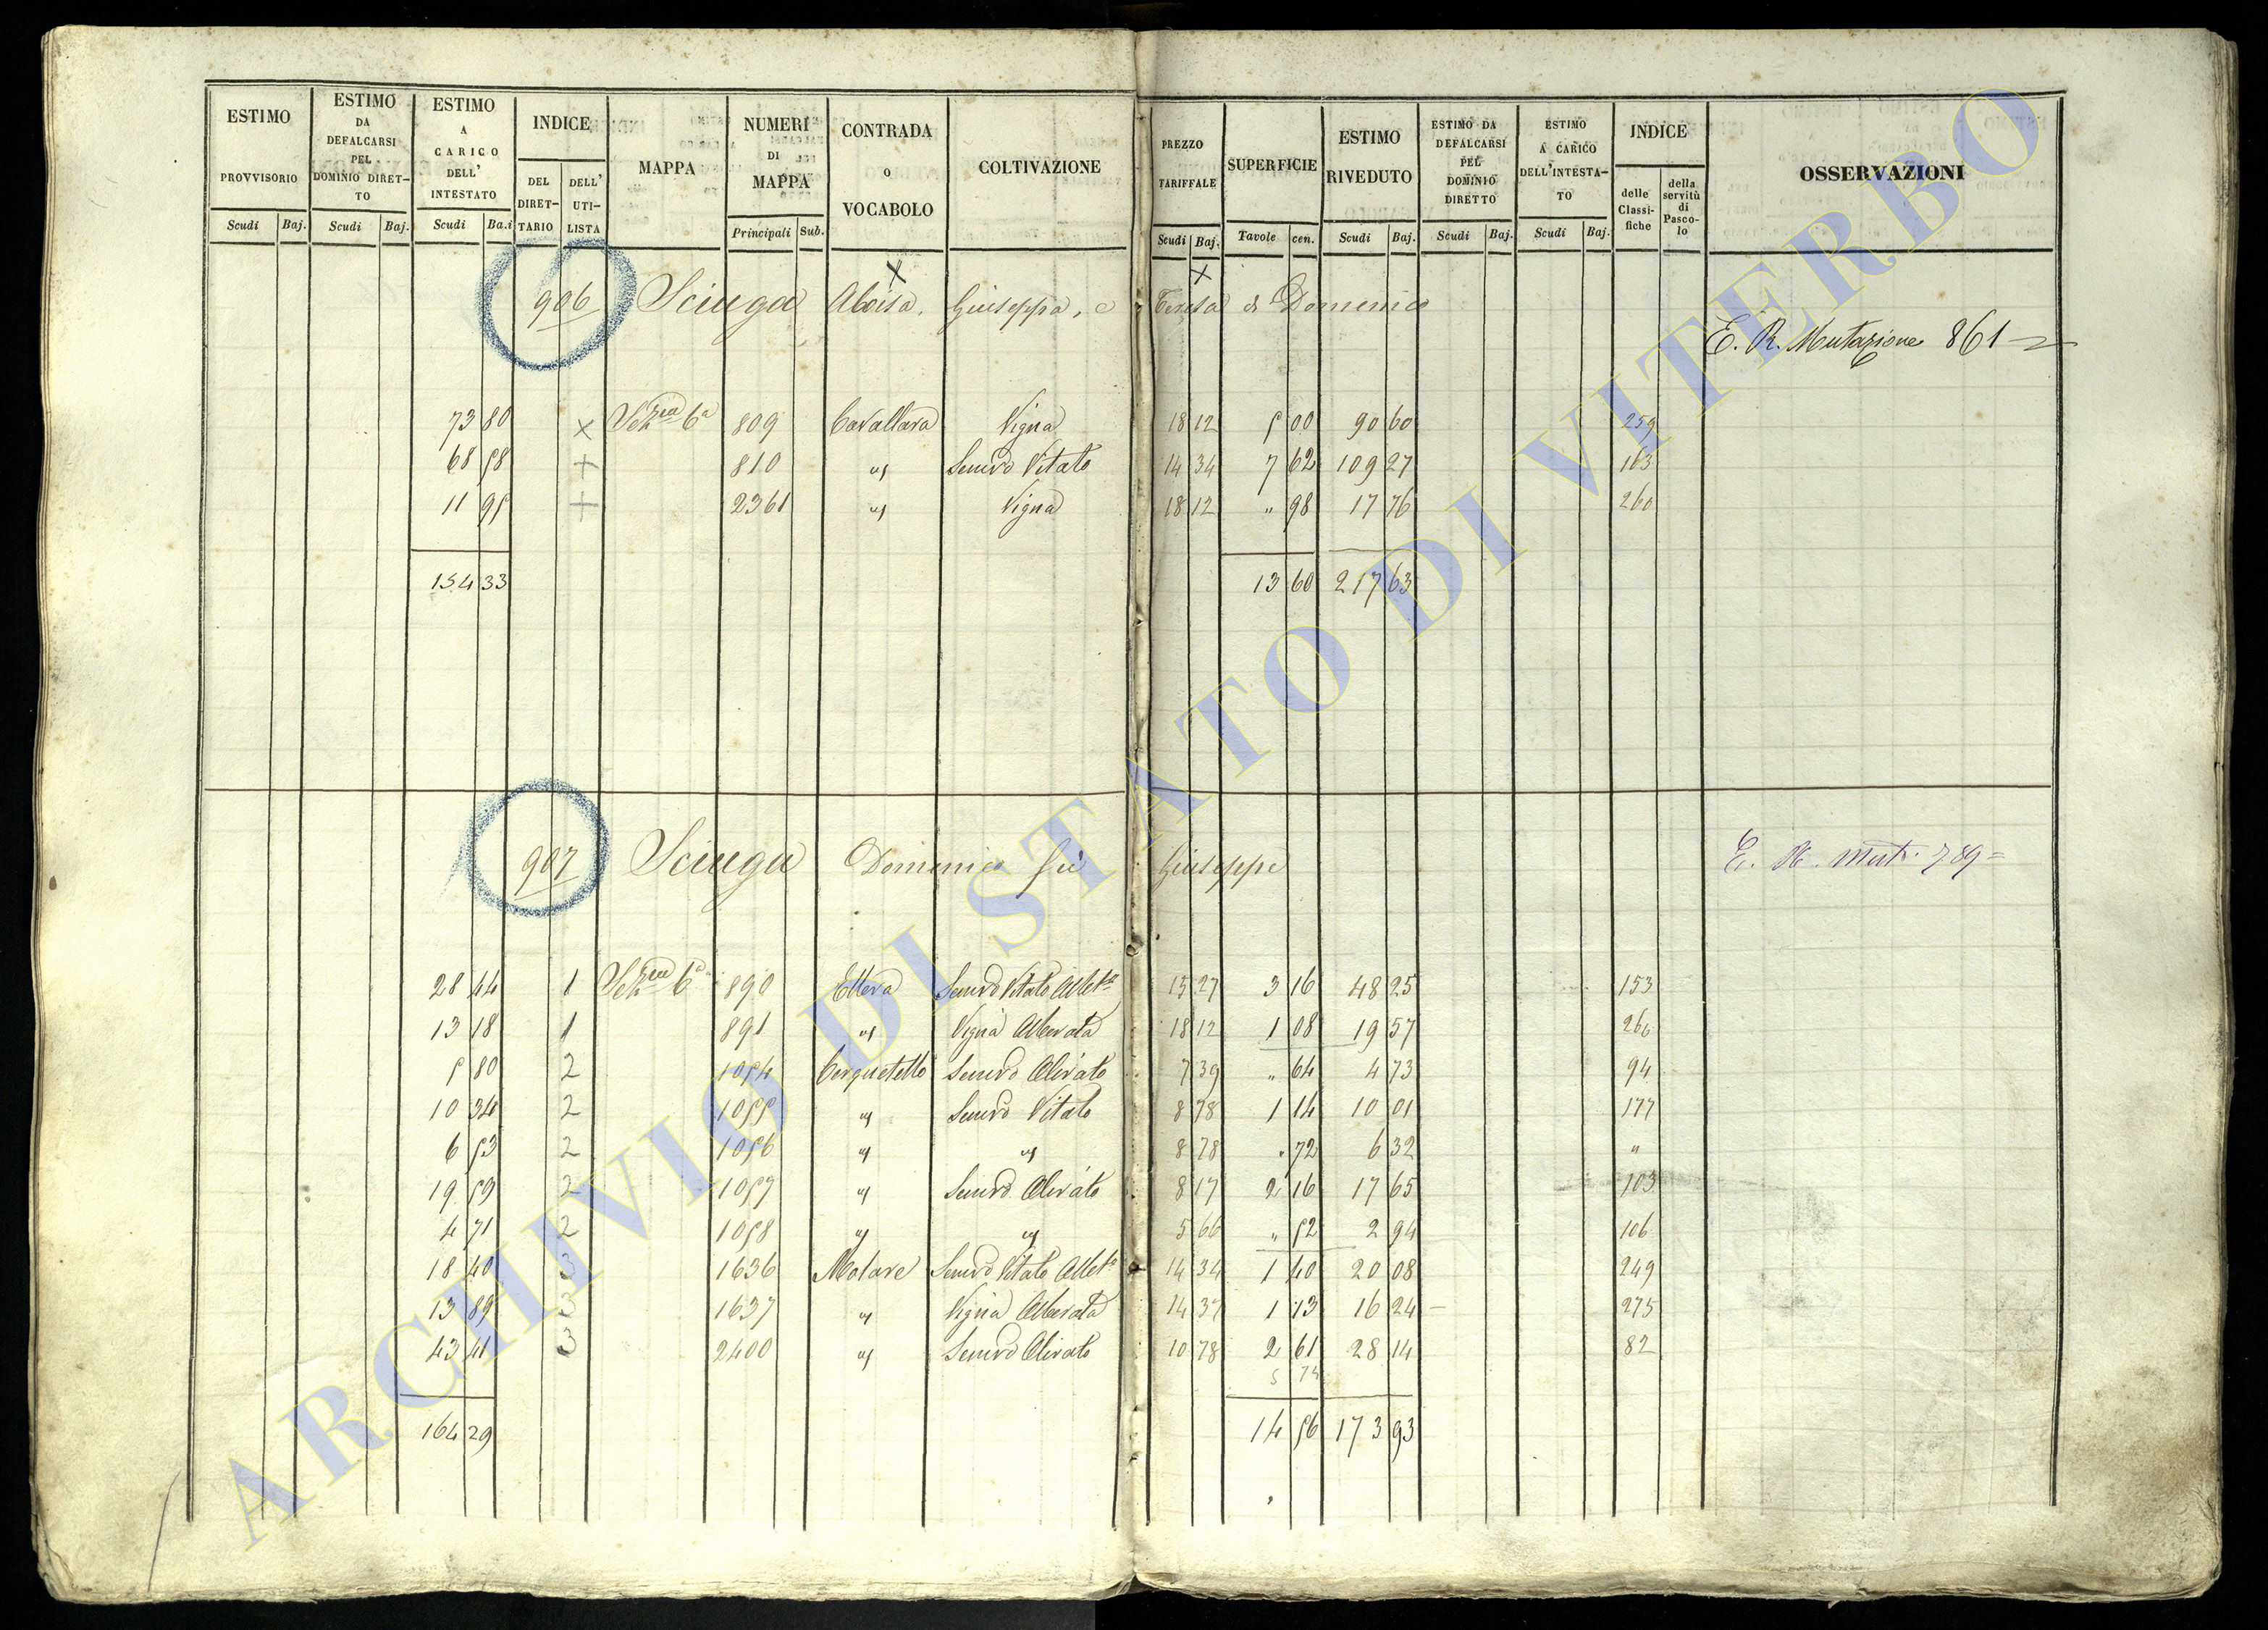 ESTIMO PROVVISORIO Scudi Baj.
ESTIMO DA DEFALCARSI PEL DOMINIO DIRET-TO Scudi Baj.
ESTIMO A CARICO DELL' INTESTATO Scudi Ba.i
INDICE DEL DIRET-TARIO DELL' UTI-LISTA
MAPPA
NUMERI DI MAPPA Principali Sub.
CONTRADA O VOCABOLO
COLTIVAZIONE
PREZZO TARIFFALE Scudi Baj.
SUPERFICIE Tavole cen.
ESTIMO RIVEDUTO Scudi Baj.
ESTIMO DA DEFALCARSI PEL DOMINIO DIRETTO Scudi Baj.
ESTIMO A CARICO DELL'INTESTA-TO Scudi Baj.
INDICE delle Classi-fiche della servitù di Pasco-lo
OSSERVAZIONI
x x
906 Sciuga Aloisa, Giuseppa, e Teresa di Domenico
E. R. Mutazione 861
73 80 x Sez 6a 809 Cavallara Vigna 18 12 5 00 90 60 259
68 58 + 810 " Semvo Vitato 14 34 7 62 109 27 163
11 95 + 2361 " Vigna 18 12 " 98 17 76 260
154 33 13 60 217 63
907 Sciuga Domenico fu Giuseppe E. R. Mut. 789 =
28 44 1 Sez 6a 890 Ellera Semvo Vitato Albto 15 27 3 16 48 25 153
13 18 1 891 " Vigna Alberata 18 12 1 08 19 57 266
5 80 2 1054 Cerquetello Semvo Olivato 7 39 " 64 4 73 94
10 34 2 1055 " Semvo Vitato 8 78 1 14 10 01 177
6 53 2 1056 " " 8 78 " 72 6 32 "
19 59 2 1057 " Semvo Olivato 8 17 2 16 17 65 103
4 71 2 1058 " " 5 66 " 52 2 94 106
18 40 3 1636 Molare Semvo Vitato Albto 14 34 1 40 20 08 249
13 89 3 1637 " Vigna Alberata 14 37 1 13 16 24 – 275
43 41 3 2400 " Semvo Olivato 10 78 2 61 28 14 82
5 74
164 29 14 56 173 93
ARCHIVIO DI STATO DI VITERBO